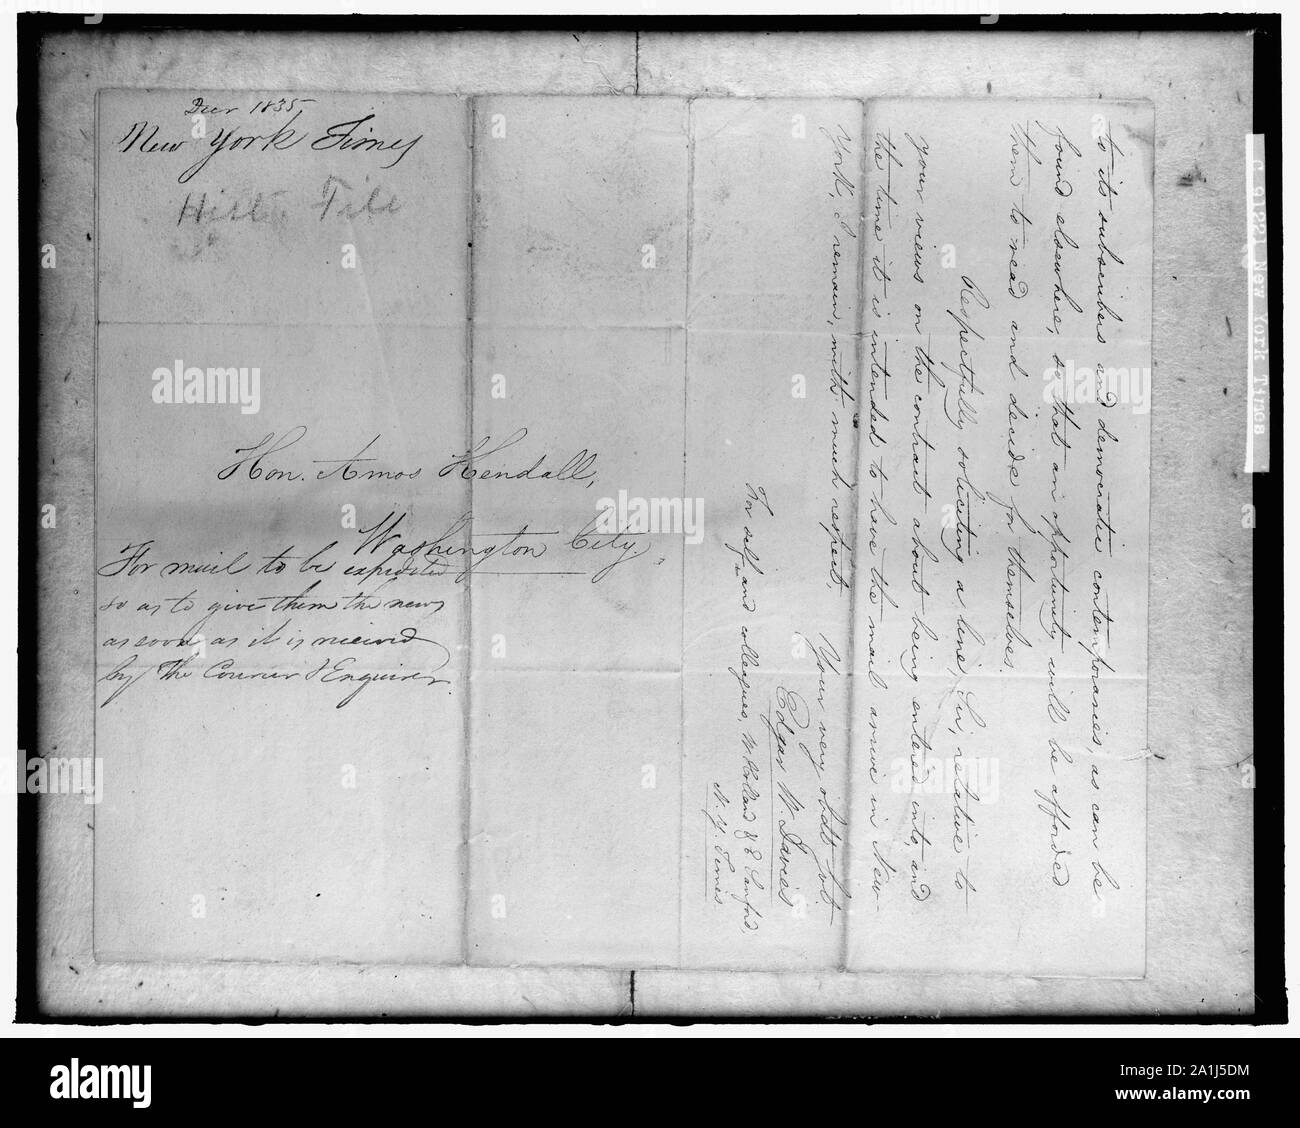 Decr 1835,
New York Times
Hist. File
Hon. Amos Kendall,
Washington City.
For mail to be expedited
so as to give them the news
as soon as it is received
by The Courier & Enquirer.
to its subscribers and democratic contemporaries, as can be
found elsewhere, so that an opportunity will be afforded
them to read and decide for themselves.
Respectfully soliciting a line, Sir, relative to
your views on the contract about being entered into, and
the time it is intended to have the mail arrive in New-
York, I remain, with much respect,
Your very obdt svt
Edgar W. Davies
For self and colleagues, W Holland & E Sanford,
N. Y. Times
C 91221 New York Times
alamy
alamy
Image ID: 2A1J5DM
www.alamy.com